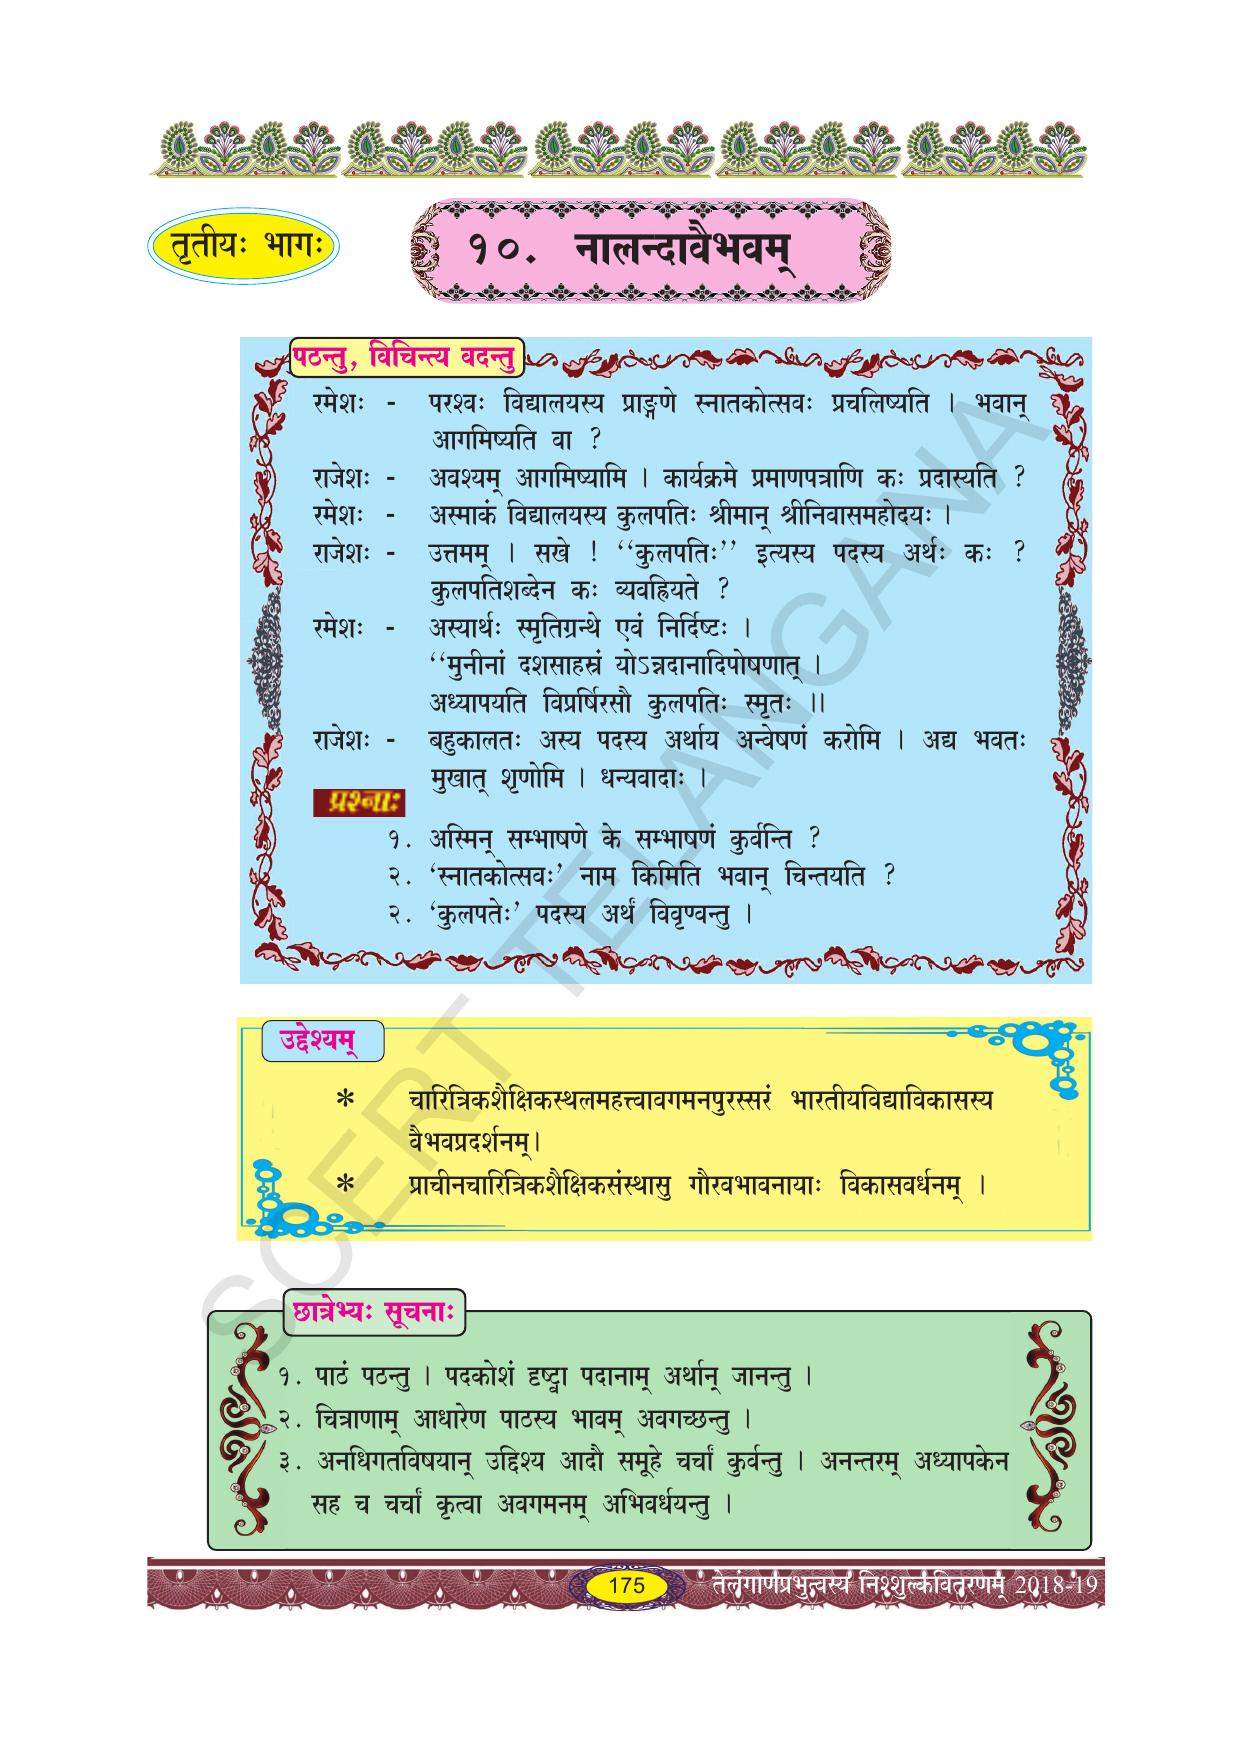 तृतीयः भागः
१०. नालन्दावैभवम्
पठन्तु, विचिन्त्य वदन्तु
रमेशः - परश्वः विद्यालयस्य प्राङ्गणे स्नातकोत्सवः प्रचलिष्यति । भवान्
आगमिष्यति वा ?
राजेशः - अवश्यम् आगमिष्यामि । कार्यक्रमे प्रमाणपत्राणि कः प्रदास्यति ?
रमेशः - अस्माकं विद्यालयस्य कुलपतिः श्रीमान् श्रीनिवासमहोदयः ।
राजेशः - उत्तमम् । सखे ! ‘‘कुलपतिः’’ इत्यस्य पदस्य अर्थः कः ?
कुलपतिशब्देन कः व्यवह्रियते ?
रमेशः - अस्यार्थः स्मृतिग्रन्थे एवं निर्दिष्टः ।
‘‘मुनीनां दशसाहस्रं योऽन्नदानादिपोषणात् ।
अध्यापयति विप्रर्षिरसौ कुलपतिः स्मृतः ।।
राजेशः - बहुकालतः अस्य पदस्य अर्थाय अन्वेषणं करोमि । अद्य भवतः
मुखात् शृणोमि । धन्यवादाः ।
प्रश्नाः
१. अस्मिन् सम्भाषणे के सम्भाषणं कुर्वन्ति ?
२. ‘स्नातकोत्सवः’ नाम किमिति भवान् चिन्तयति ?
२. ‘कुलपतेः’ पदस्य अर्थं विवृण्वन्तु ।
उद्देश्यम्
* चारित्रिकशैक्षिकस्थलमहत्त्वावगमनपुरस्सरं भारतीयविद्याविकासस्य
वैभवप्रदर्शनम्।
* प्राचीनचारित्रिकशैक्षिकसंस्थासु गौरवभावनायाः विकासवर्धनम् ।
छात्रेभ्यः सूचनाः
१. पाठं पठन्तु । पदकोशं दृष्ट्वा पदानाम् अर्थान् जानन्तु ।
२. चित्राणाम् आधारेण पाठस्य भावम् अवगच्छन्तु ।
३. अनधिगतविषयान् उद्दिश्य आदौ समूहे चर्चां कुर्वन्तु । अनन्तरम् अध्यापकेन
सह च चर्चां कृत्वा अवगमनम् अभिवर्धयन्तु ।
175 तेलंगाणप्रभुत्वस्य निश्शुल्कवितरणम् 2018-19
SCERT TELANGANA